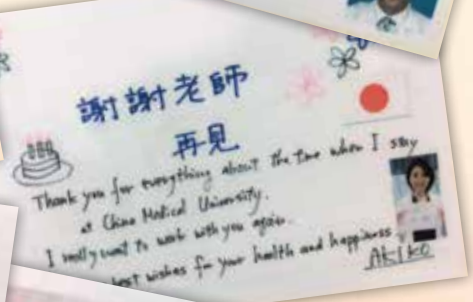 謝謝老師
再見
Thank you for everything about the time when I stay
at China Medical University.
I really want to work with you again.
best wishes for your health and happiness
AKIKO